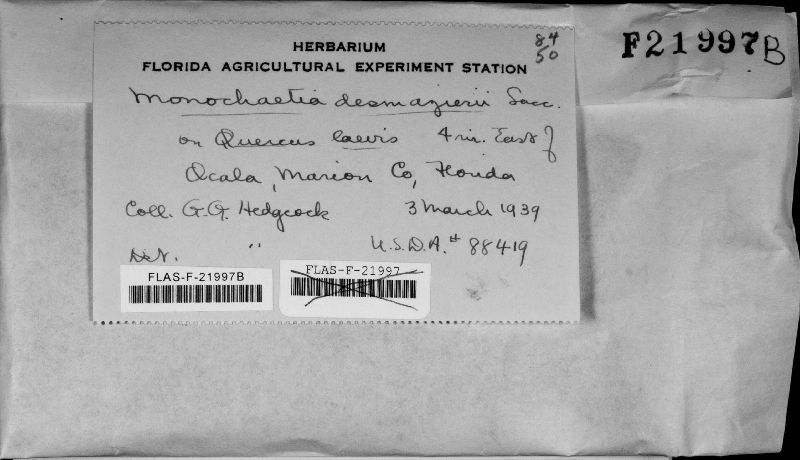 F21997B
84
50
HERBARIUM
FLORIDA AGRICULTURAL EXPERIMENT STATION
Monochaetia desmazierii Sacc.
on Quercus laevis 4 mi. East of
Ocala, Marion Co, Florida
Coll. G.G. Hedgcock 3 March 1939
Det. " U.S.D.A. # 88419
FLAS-F-21997B
FLAS-F-21997